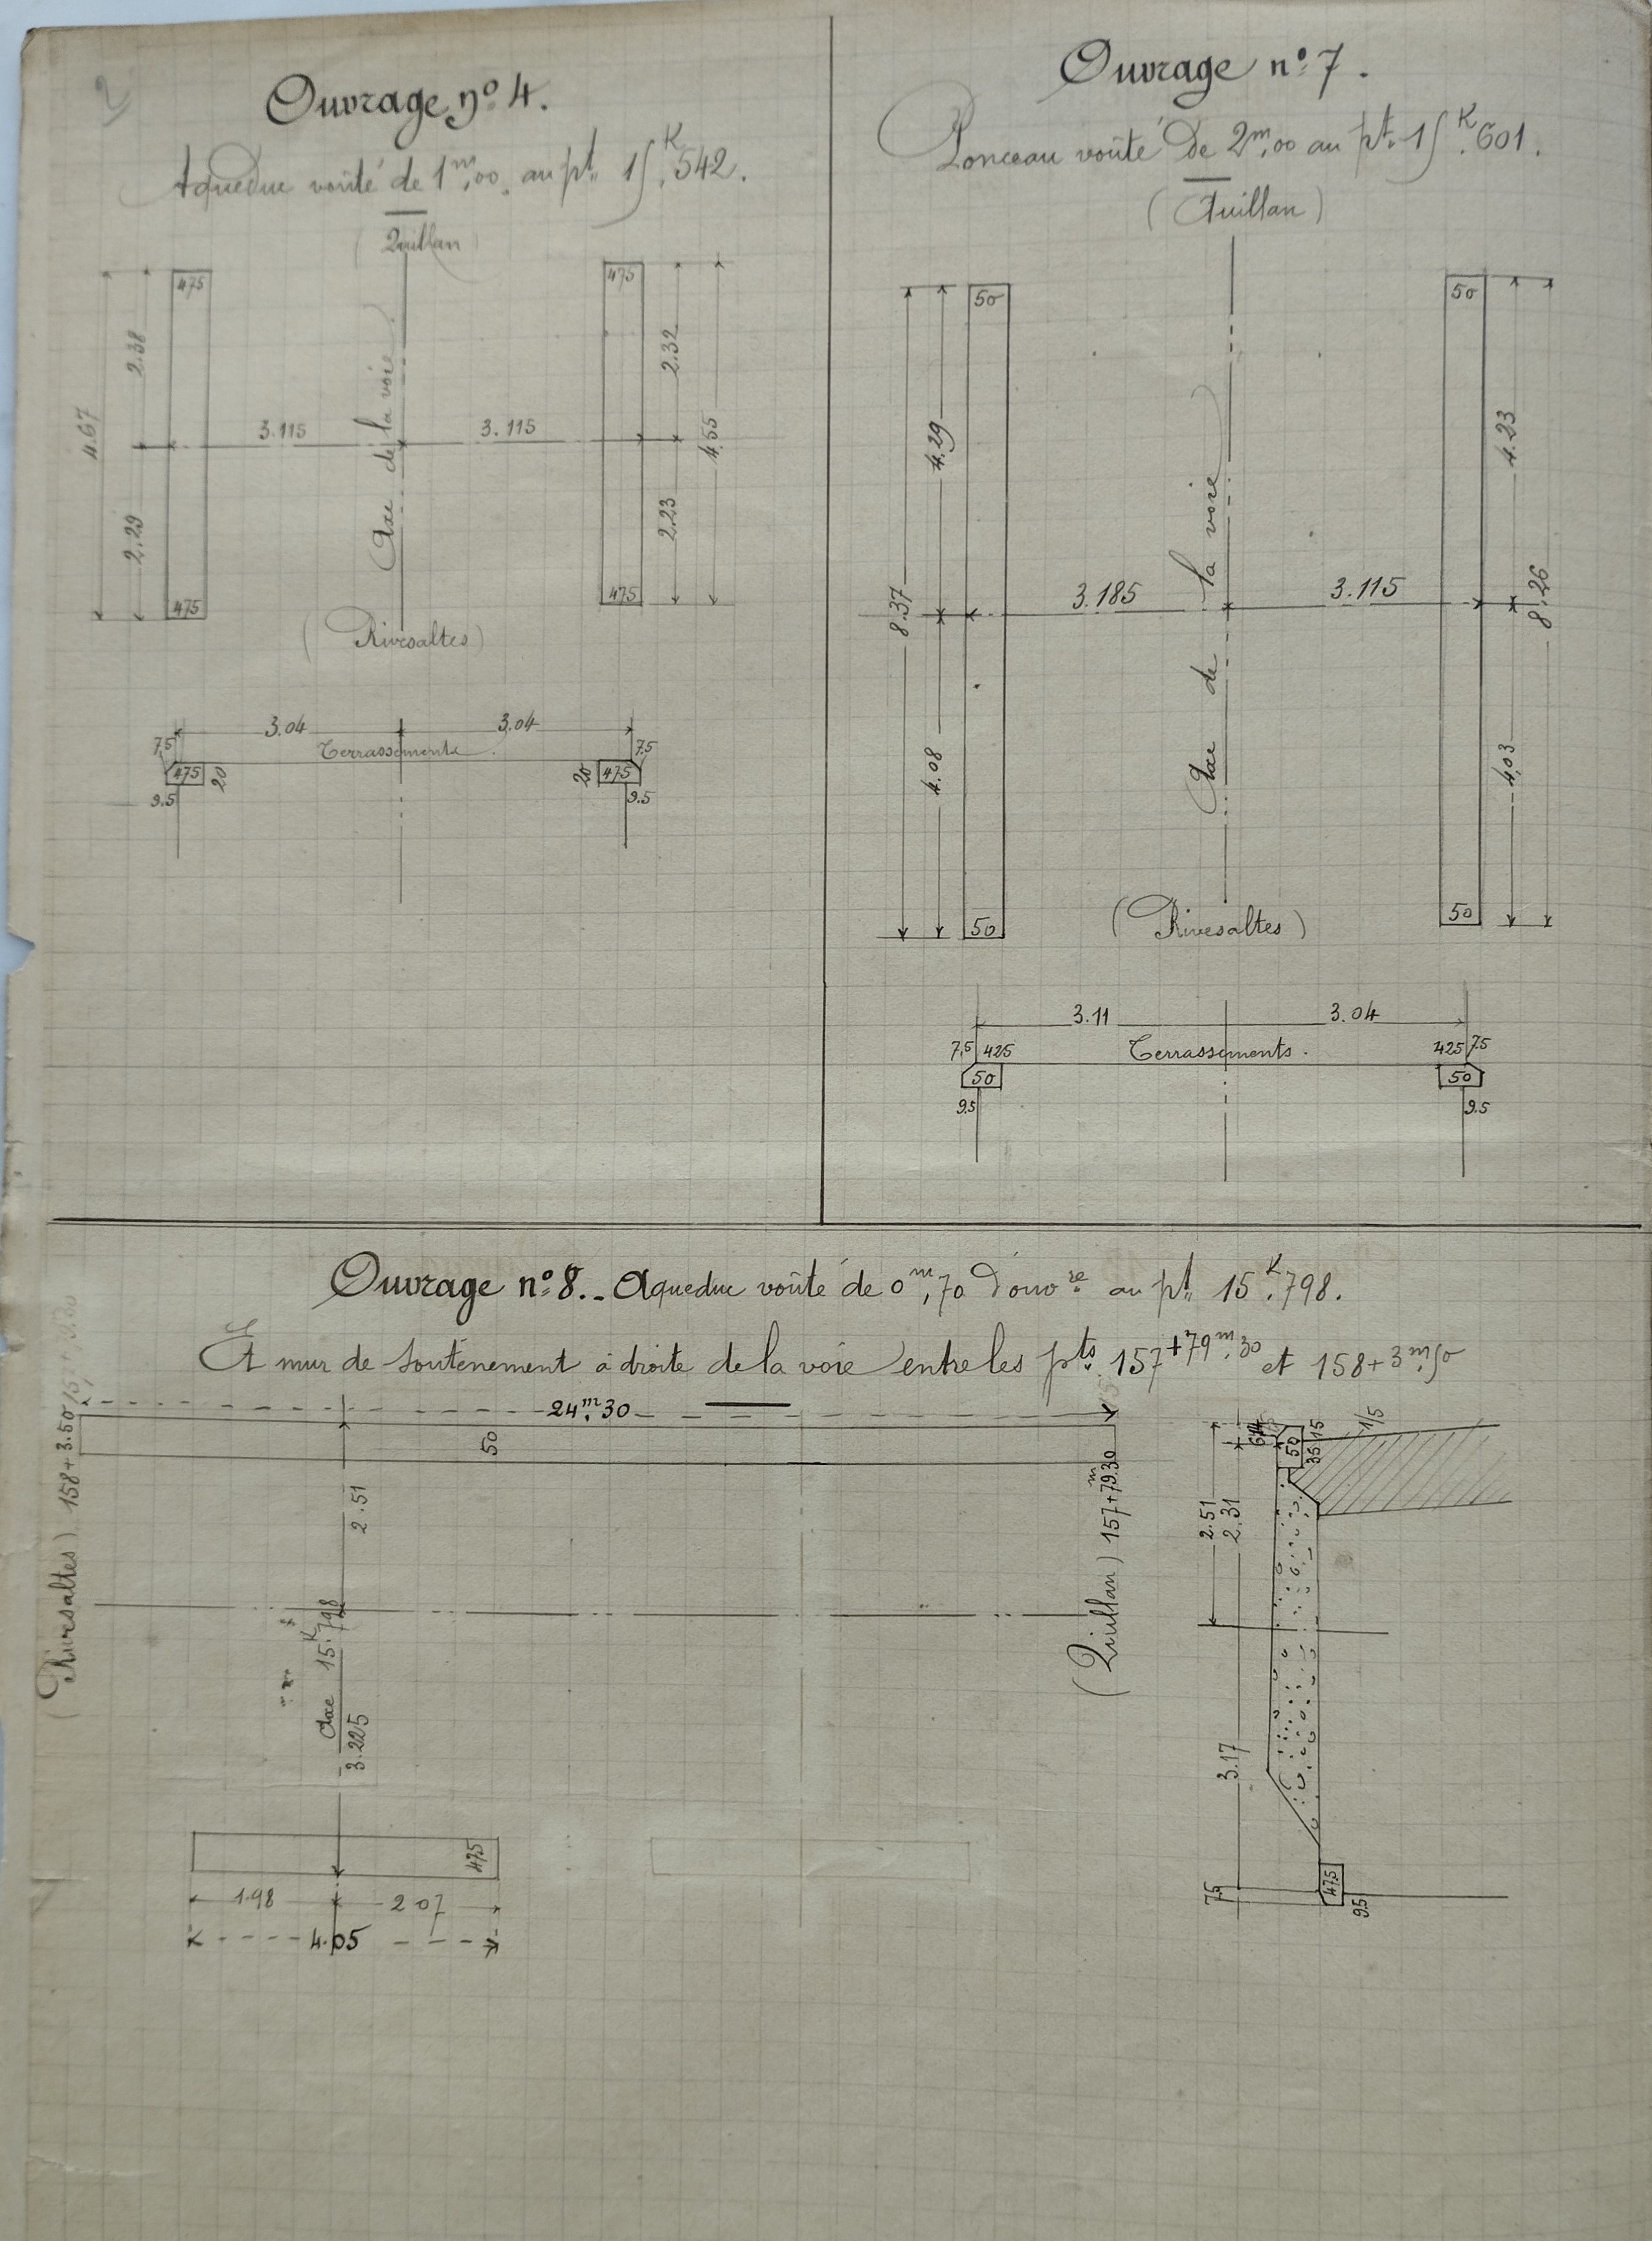 Ouvrage nº 4.
Aqueduc voûté de 1m,00 au pt. 15K.542.
(Quillan)
475
475
2.38
4.67
2.29
3.115
Axe de la voie
3.115
2.32
4.55
2.23
475
475
(Rivesaltes)
3.04
3.04
7.5
Terrassements.
7.5
475
20
20
475
9.5
9.5
Ouvrage nº 7.
Ponceau voûté de 2m,00 au pt. 15K.601.
(Quillan)
50
50
4.29
4.23
8.37
3.185
Axe de la voie
3.115
8.26
4.08
4.03
50
(Rivesaltes)
50
3.11
3.04
7,5
425
Terrassements.
425
7.5
50
50
9.5
9.5
Ouvrage nº 8._ Aqueduc voûté de 0m,70 d'ouvre au pt. 15K.798.
Et mur de soutènement à droite de la voie entre les pts. 157+79m.30 et 158+3m.50
24m.30
(Rivesaltes) 158+3.50
50
2.51
Axe 15K.798
3.225
(Quillan) 157+79m.30
475
1.98
2.07
4.05
50
15
35
1/5
2.51
2.31
3.17
7.5
475
9.5